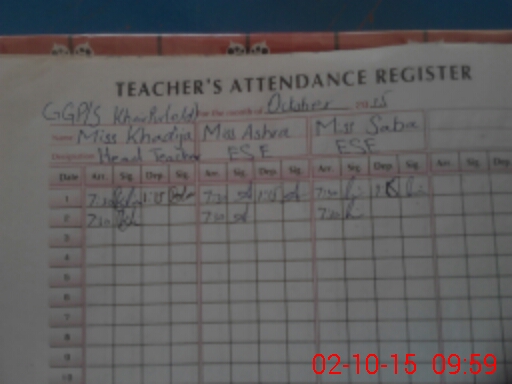 TEACHER'S ATTENDANCE REGISTER
GGP/S for the month of October 2015
Name Miss Khadija Miss Ashra Miss Saba
Designation Head Teacher ESE ESE
Date Arr. Sig. Dep. Sig. Arr. Sig. Dep. Sig. Arr. Sig. Dep. Sig. Arr. Sig. Dep.
1 7:30 1:15 7:30 1:15 7:30
2 7:30 7:30 7:30
3
4
5
6
7
8
9
10
02-10-15 09:59